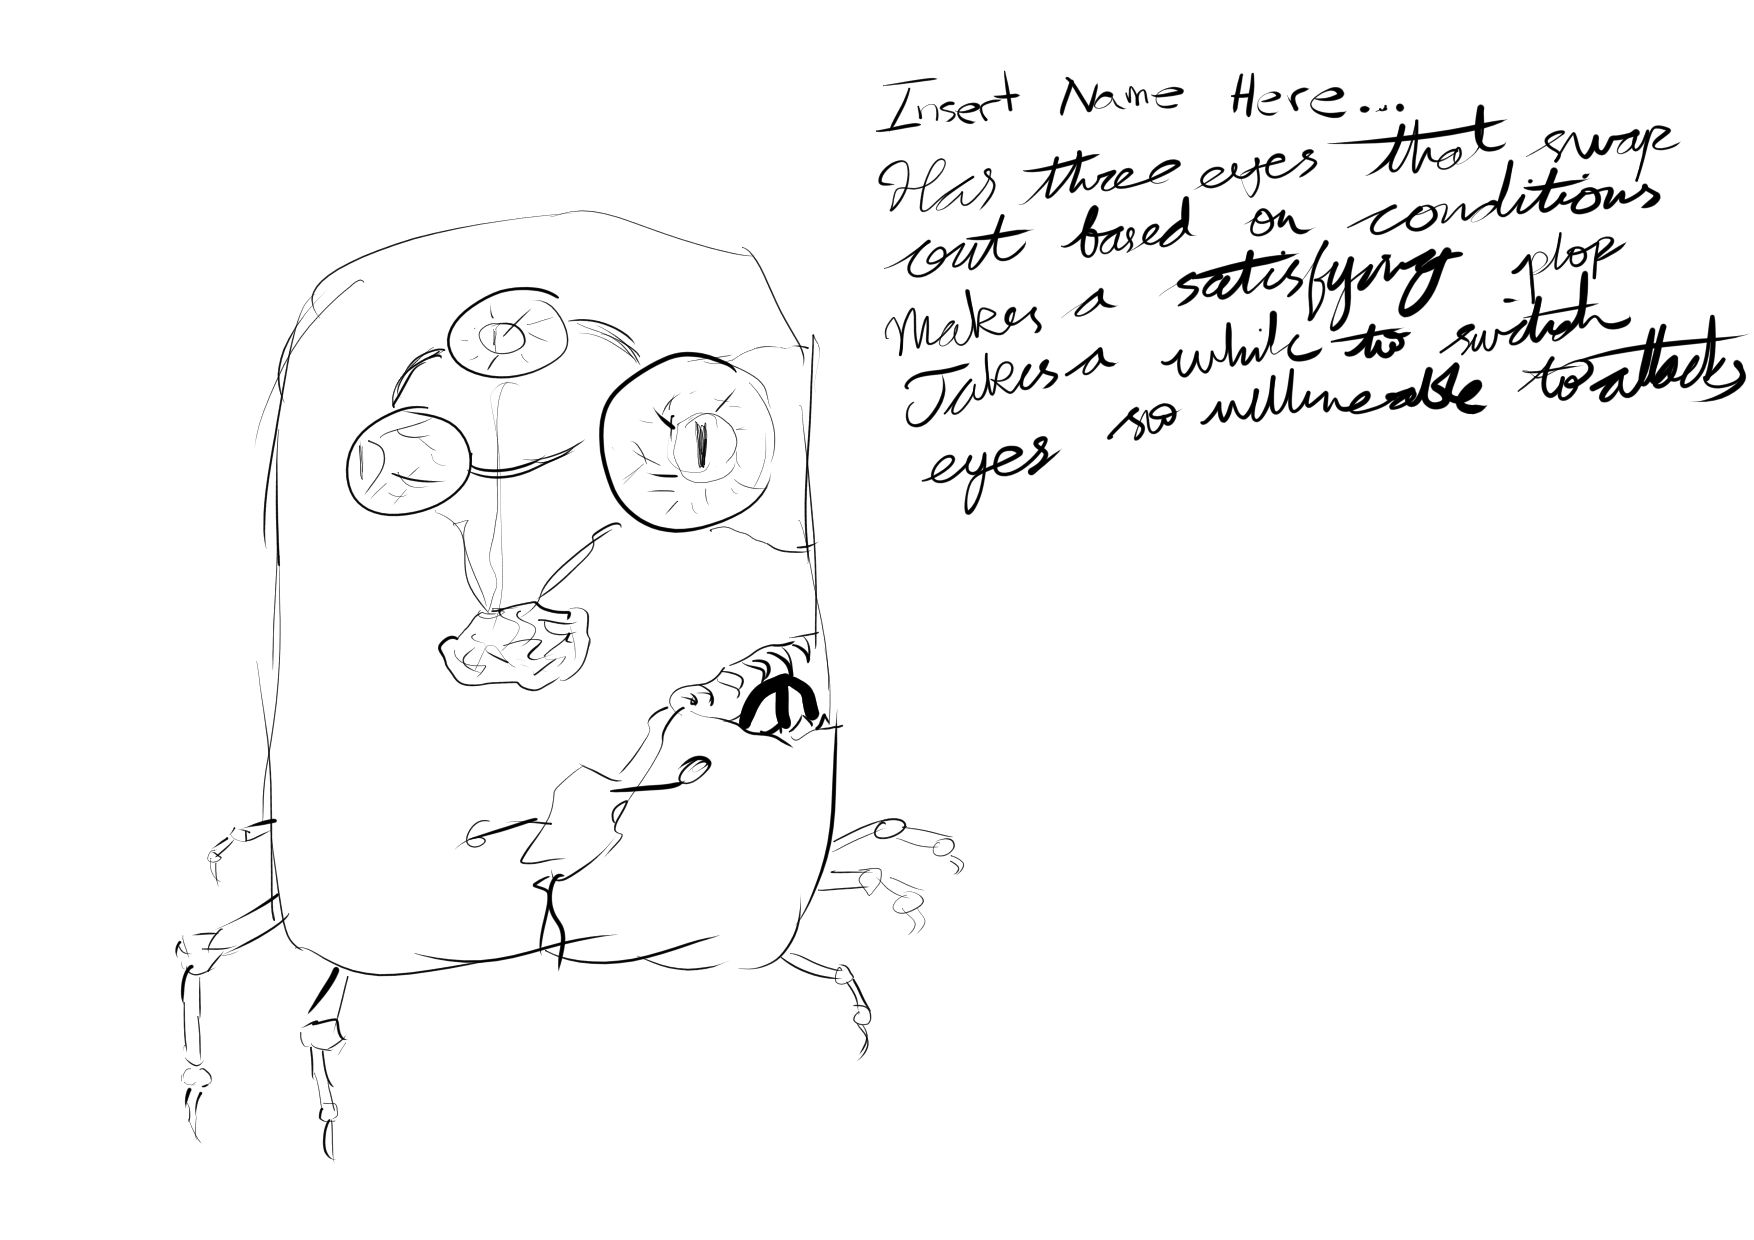 Insert Name Here...
Has three eyes that swap
out based on conditions
Makes a satisfying plop
Takes a while to switch
eyes so vulnerable to attacks